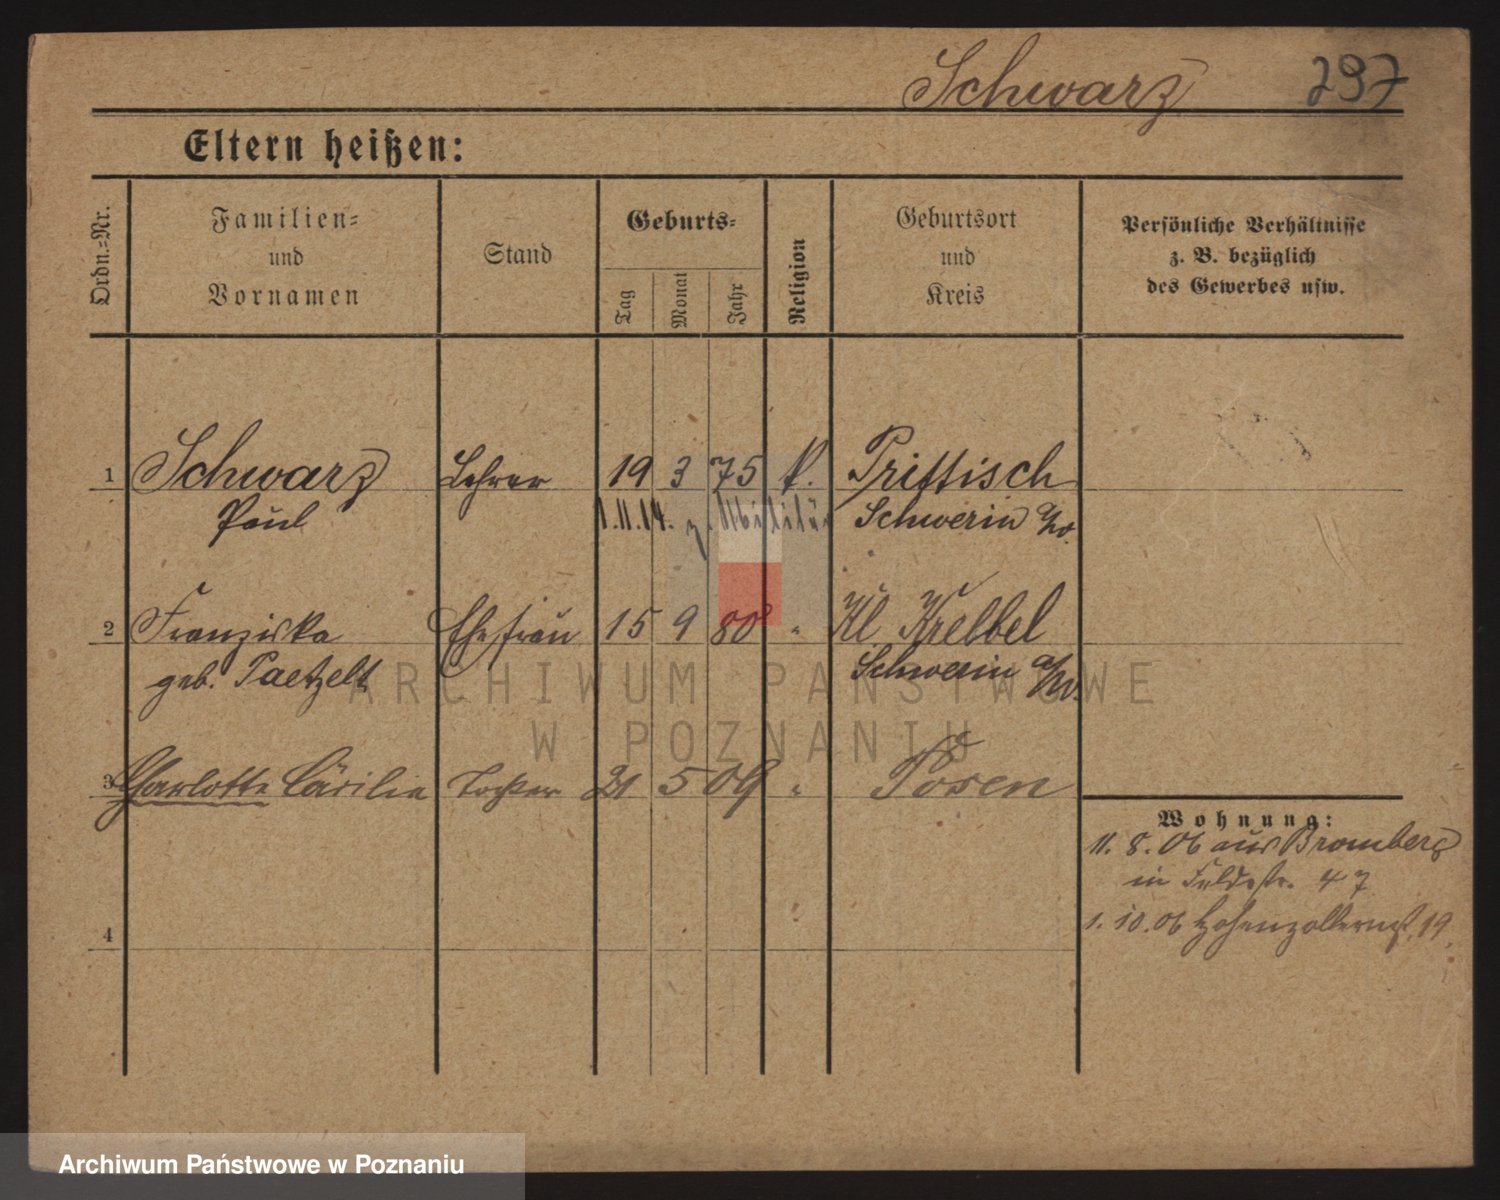 Schwarz 297
Eltern heißen:
Ordn.-Nr.
Familien-
und
Vornamen
Stand
Geburts-
Tag
Monat
Jahr
Religion
Geburtsort
und
Kreis
Persönliche Verhältnisse
z. B. bezüglich
des Gewerbes usw.
1 Schwarz Lehrer 19 3 75 k. Prittisch
Paul 1.11.14. z. Militär Schwerin a/W.
2 Franziska Ehefrau 15 9 80 " Kl Krebbel
geb. Paetzelt Schwerin a/W.
3 Charlotte Cäcilie Tochter 21 5 09 " Posen
Wohnung:
11. 8. 06 aus Bromberg
in 47
1. 10. 06 Hohenzollernst. 19
4
ARCHIWUM PAŃSTWOWE
W POZNANIU
Archiwum Państwowe w Poznaniu